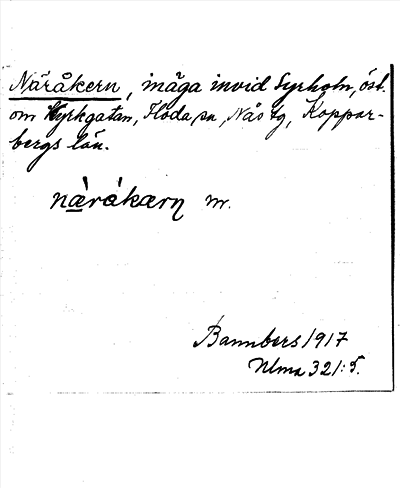 Näråkern, inäga invid Syrholn, öst.
om Kyrkgatan, Floda sn, Nås tg, Koppar-
bergs län.
nǽrákærn m.
Bannbers 1917
Ulma 321:5.